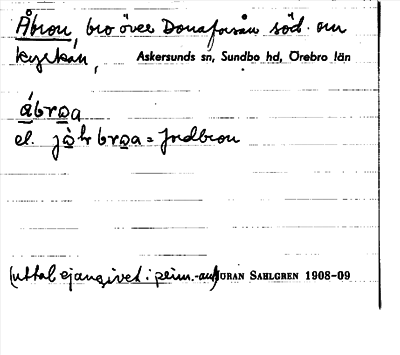 Åbron, bro över Donaforsån söd. om
kyrkan, Askersunds sn, Sundbo hd, Örebro län
ábroa
el. jo̊hrbroa = Jordbron
(uttal ej angivet i prim.-auf) GÖRAN SAHLGREN 1908-09